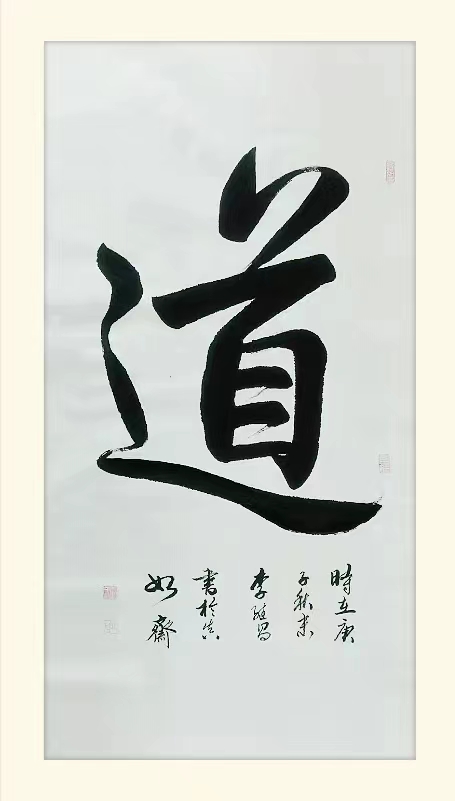 道
時在庚
子秋末
李延昌
書於真
如齋